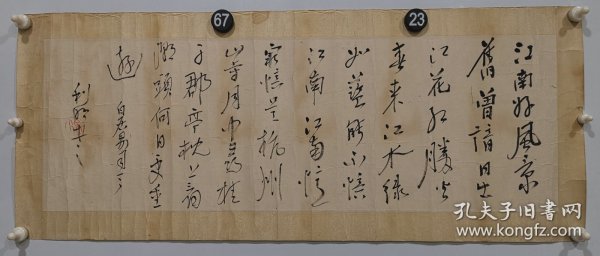 67
23
江南好風景
舊曾諳日出
江花紅勝火
春來江水綠
如藍能不憶
江南 江南憶
最憶是杭州
山寺月中尋桂
子郡亭枕上看
潮頭何日更重
遊 白居易
孔夫子旧书网
www.kongfz.com